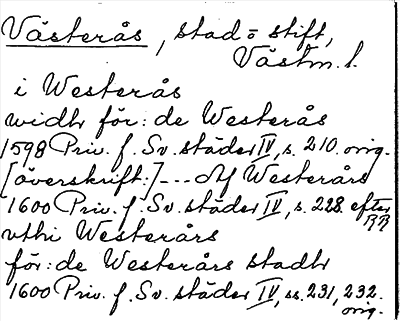 Västerås, stad = stift,
Västm. l.
i Westerås
widh för: de Westerås
1598 Priv. f. Sv. städer IV, s. 210. orig.
[överskrift:] --- Af Westerårs
1600 Priv. f. Sv. städer IV, s. 228. efter RR
vthi Westerårs
för: de Westerårs stadh
1600 Priv. f. Sv. städer IV, ss. 231, 232. orig.